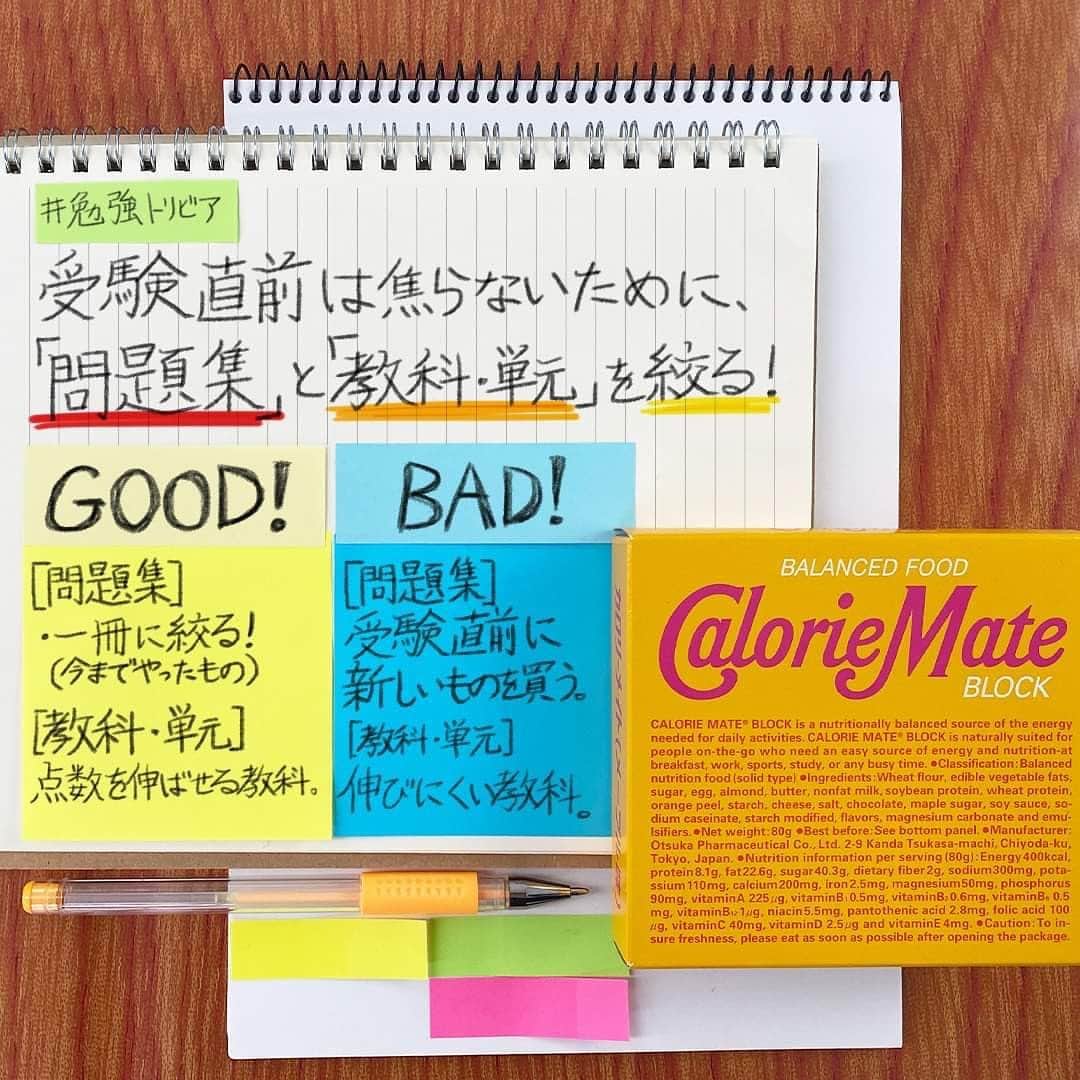 #勉強トリビア
受験直前は焦らないために、
「問題集」と「教科・単元」を絞る!
GOOD!
[問題集]
・一冊に絞る!
(今までやったもの)
[教科・単元]
点数を伸ばせる教科。
BAD!
[問題集]
受験直前に
新しいものを買う。
[教科・単元]
伸びにくい教科。
BALANCED FOOD
CalorieMate
BLOCK
CALORIE MATE® BLOCK is a nutritionally balanced source of the energy
needed for daily activities. CALORIE MATE® BLOCK is naturally suited for
people on-the-go who need an easy source of energy and nutrition-at
breakfast, work, sports, study, or any busy time. ●Classification: Balanced
nutrition food (solid type) ●Ingredients: Wheat flour, edible vegetable fats,
sugar, egg, almond, butter, nonfat milk, soybean protein, wheat protein,
orange peel, starch, cheese, salt, chocolate, maple sugar, soy sauce, so-
dium caseinate, starch modified, flavors, magnesium carbonate and emul-
sifiers. ●Net weight: 80g ●Best before: See bottom panel. ●Manufacturer:
Otsuka Pharmaceutical Co., Ltd. 2-9 Kanda Tsukasa-machi, Chiyoda-ku,
Tokyo, Japan. ●Nutrition information per serving (80g): Energy 400kcal,
protein 8.1g, fat 22.6g, sugar 40.3g, dietary fiber 2g, sodium 300mg, pota-
ssium 110mg, calcium 200mg, iron 2.5mg, magnesium 50mg, phosphorus
90mg, vitaminA 225μg, vitaminB₁ 0.5mg, vitaminB₂ 0.6mg, vitaminB₆ 0.5
mg, vitaminB₁₂ 1μg, niacin 5.5mg, pantothenic acid 2.8mg, folic acid 100
μg, vitaminC 40mg, vitaminD 2.5μg and vitaminE 4mg. ●Caution: To in-
sure freshness, please eat as soon as possible after opening the package.